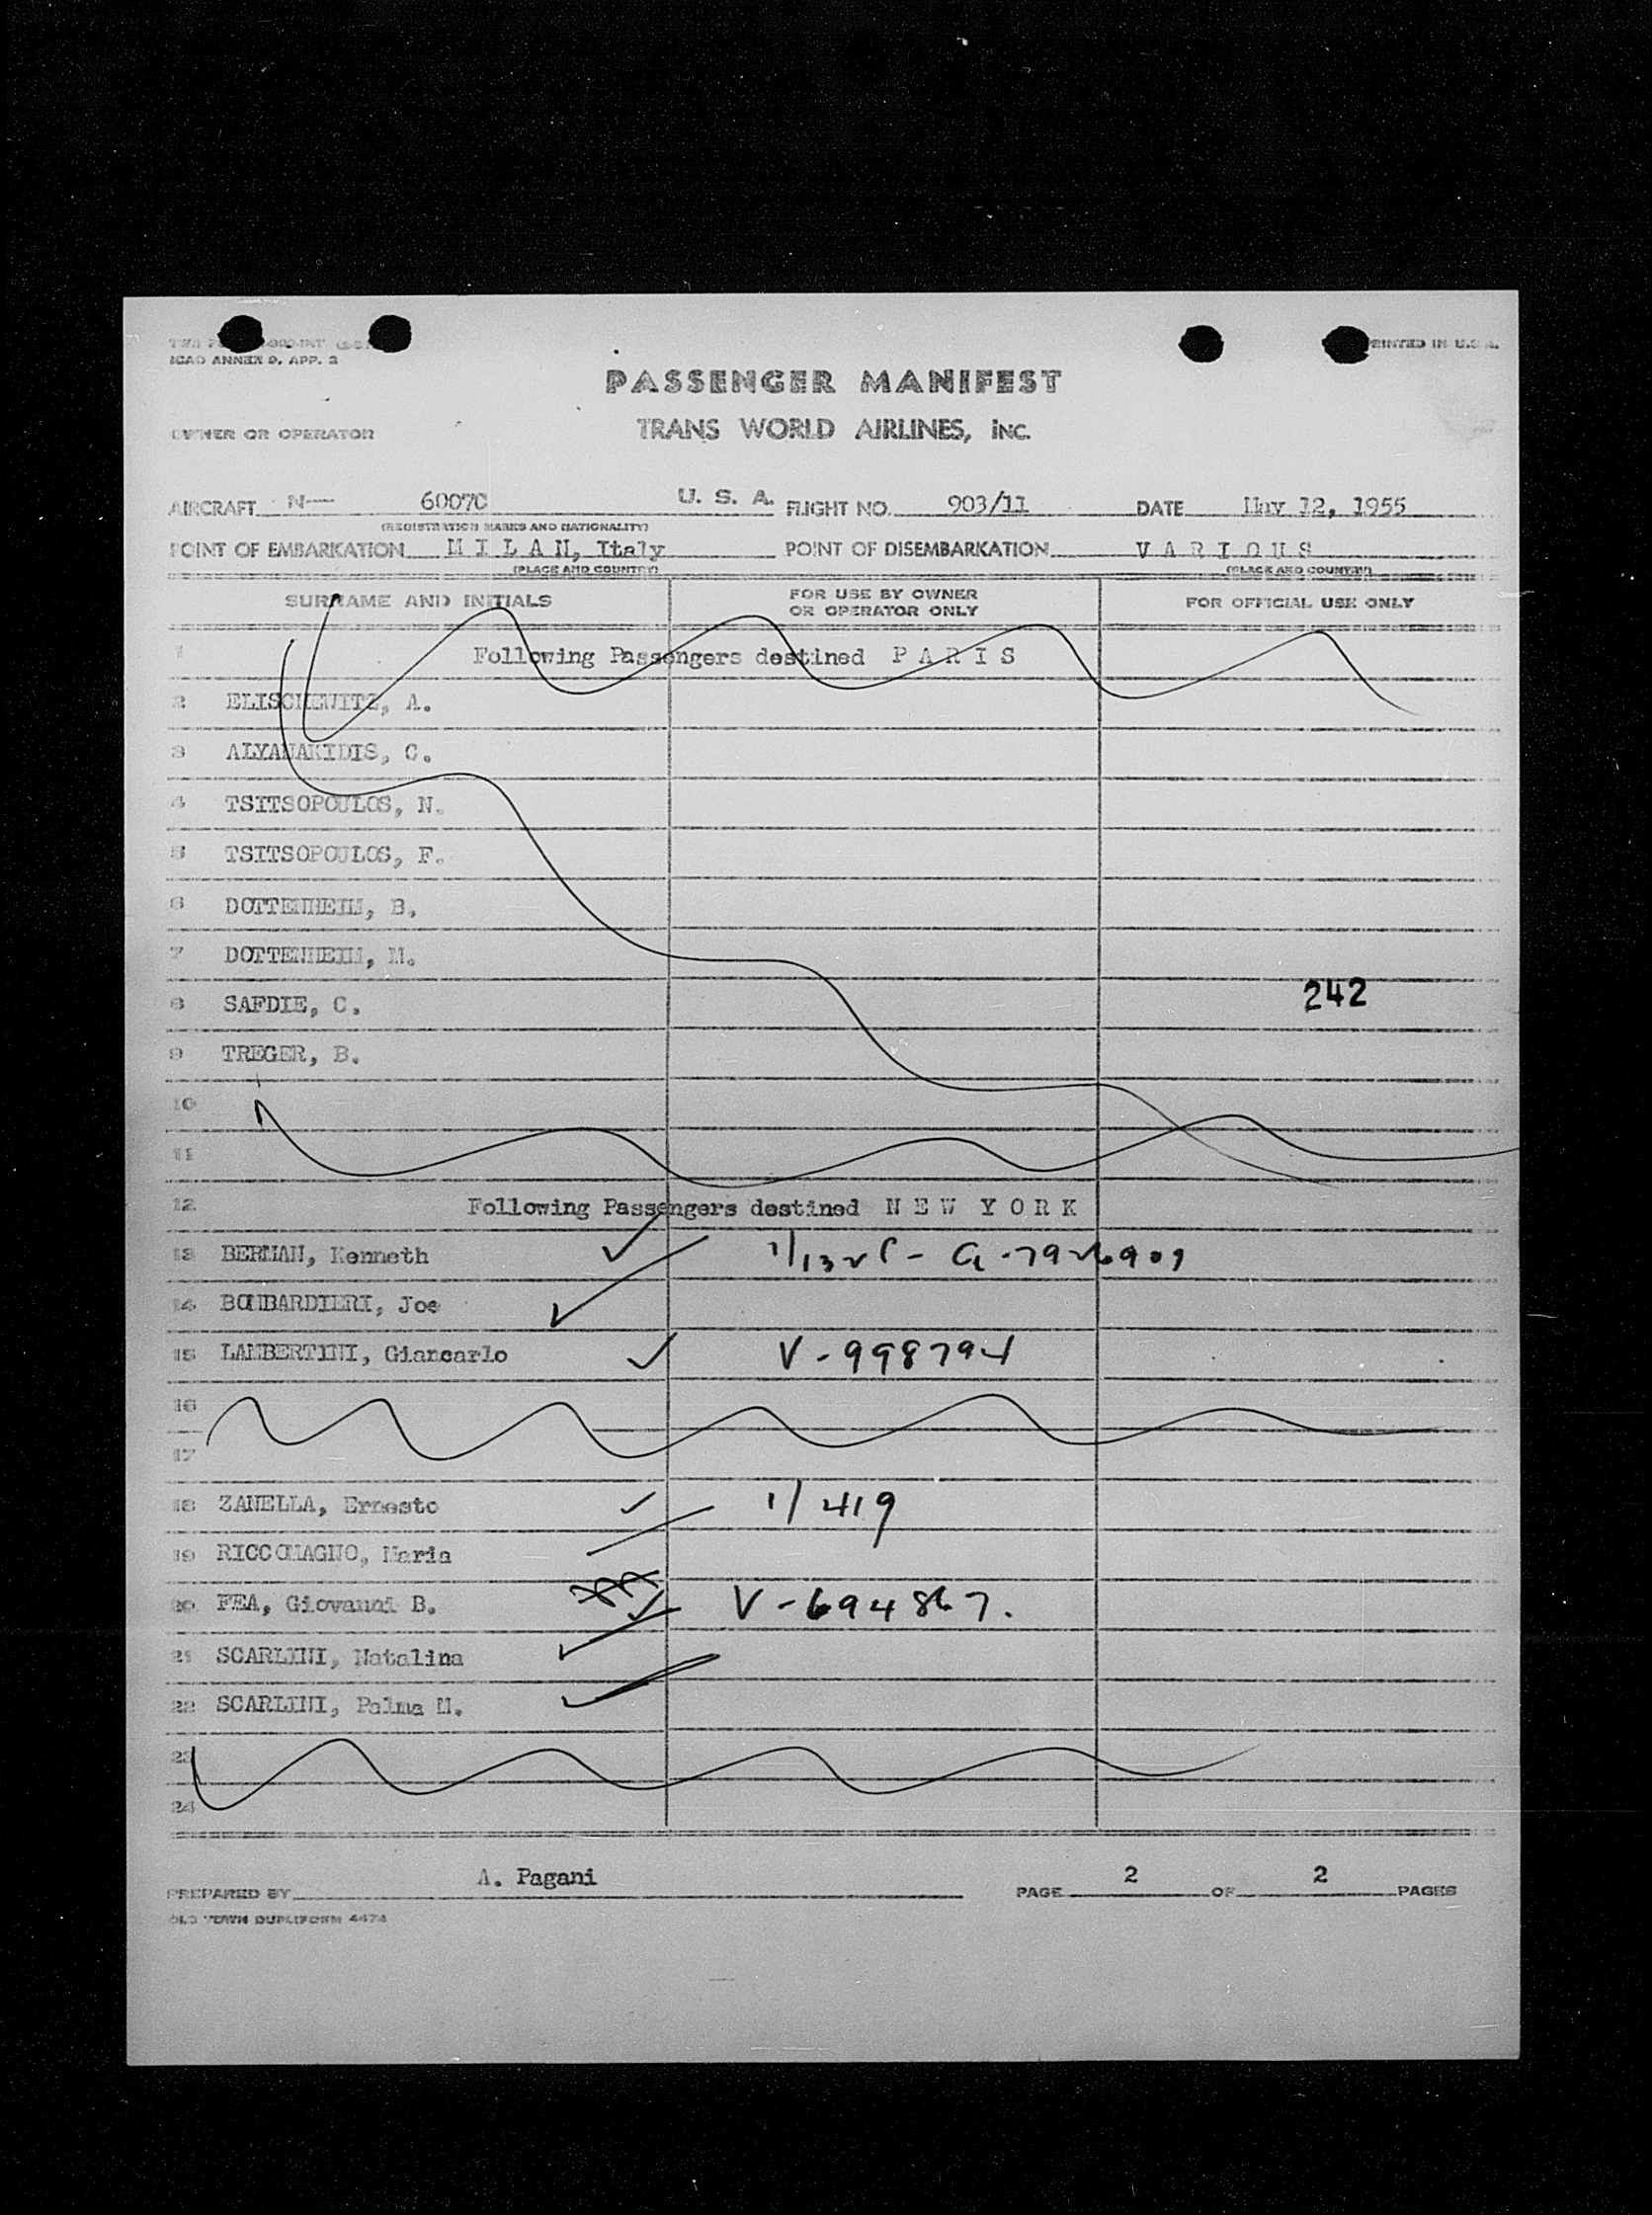 ICAO ANNEX 9, APP. 3
PRINTED IN U.S.A.
PASSENGER MANIFEST
OWNER OR OPERATOR TRANS WORLD AIRLINES, INC.
AIRCRAFT N— 6007C U. S. A. FLIGHT NO. 903/11 DATE May 12, 1955
(REGISTRATION MARKS AND NATIONALITY)
POINT OF EMBARKATION M I L A N, Italy POINT OF DISEMBARKATION V A R I O U S
(PLACE AND COUNTRY) (PLACE AND COUNTRY)
SURNAME AND INITIALS FOR USE BY OWNER OR OPERATOR ONLY FOR OFFICIAL USE ONLY
1 Following Passengers destined P A R I S
2 ELISCHEWITZ, A.
3 ALYANAKIDIS, C.
4 TSITSOPOULOS, N.
5 TSITSOPOULOS, F.
6 DOTTENHEIM, B.
7 DOTTENHEIM, M.
8 SAFDIE, C. 242
9 TREGER, B.
10
11
12 Following Passengers destined N E W Y O R K
13 BERMAN, Kenneth
14 BOMBARDIERI, Joe
15 LAMBERTINI, Giancarlo V-998794
16
17
18 ZANELLA, Ernesto 1/419
19 RICCOMAGNO, Maria
20 FEA, Giovanni B. V-694867.
21 SCARLINI, Natalina
22 SCARLINI, Palma M.
23
24
PREPARED BY A. Pagani PAGE 2 OF 2 PAGES
OLD TOWN DUPLIFORM 4474